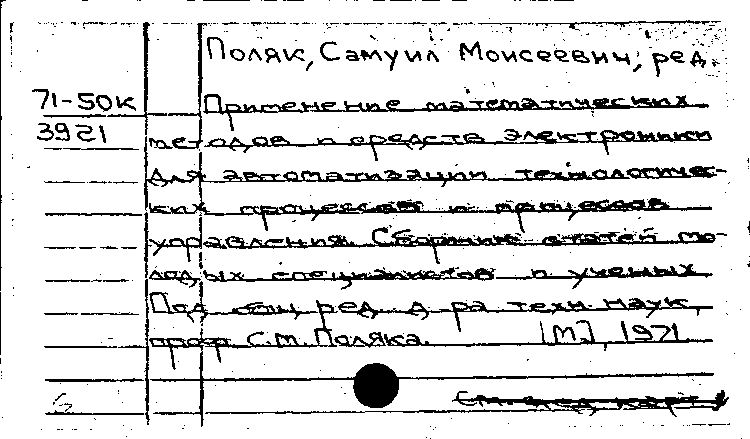 Поляк, Самуил Моисеевич, ред.
71-50к Применение математических
3921 методов и средств электроники
для автоматизации технологичес-
ких процессов и процессов
управления. Сборник статей мо-
лодых специалистов и ученых
Под общ. ред. д-ра техн. наук,
проф. С.М. Поляка. [М.], 1971
См. след. карт.